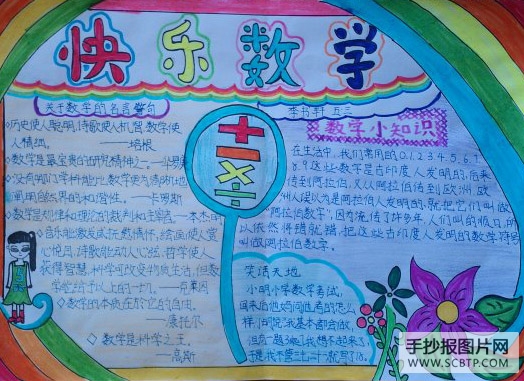 快乐数学
关于数学的名言警句
李书轩 五三
数学小知识
历史使人聪明,诗歌使人机智,数学使
人精细。 ——培根
数学是规律和理论的裁判和主宰者——本杰明
音乐能激发或抚慰情怀,绘画使人赏
心悦目,诗歌能动人心弦,哲学使人
获得智慧,科学可改变物质生活,但数
学能给予以上的一切。——克莱因
数学的本质在于它的自由。
——康托尔
数学是科学之王。
——高斯
+
-
×
÷
在生活中,我们常用的0.1.2.3.4.5.6.7
8.9这些数字是古印度人发明的,后来
传到阿拉伯,又从阿拉伯传到欧洲,欧
洲人误以为是阿拉伯人发明的,就把它们叫做
“阿拉伯数字”,因为流传了许多年,人们叫的很
以依然将错就错,把这些古印度人发明的数学符号
叫做阿拉伯数字。
笑话天地
小明小学数学考试,
回来后他妈问他考的怎么
样,小明说:我基本都会做,
但有一题3乘7我想不起来了,
于是我不管三七二十一就写了18。
手抄报图片网
WWW.SCBTP.COM